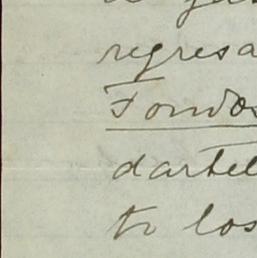 regresa
Fondos
dartel
to los